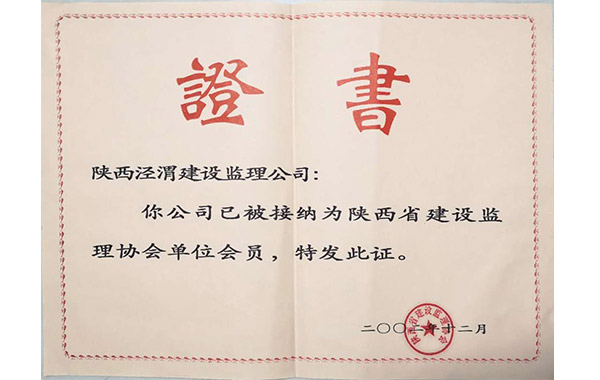 證書
陕西泾渭建设监理公司：
你公司已被接纳为陕西省建设监
理协会单位会员，特发此证。
二〇〇二年十二月
陕西省建设监理协会